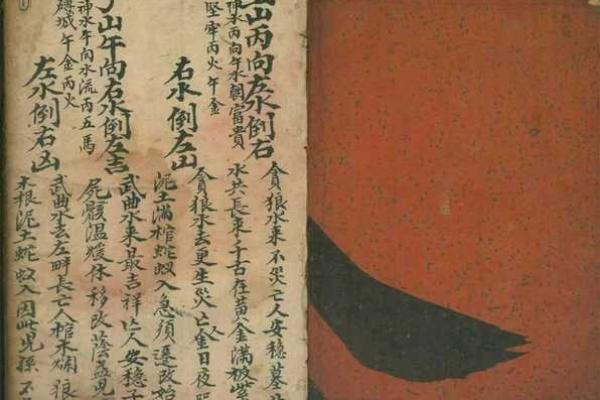 山丙向左水倒右
神水丙向午水朝富貴
堅牢丙火午金
貪狼水来不災亡人安穩墓
水共長来千古在黄金滿
貪狼水去更生災亡
右水倒左
泥土滿棺蛇蚁入急須遷改
山午向右水倒左吉
神水午向水流丙五馬
城午金丙火
武曲水来最吉祥亡人安穩
屍骸温煖休移改蔭益児
左水倒右凶
武曲水去左畔長亡人棺木爛狼
木根泥土蛇蚁入因此児孫不